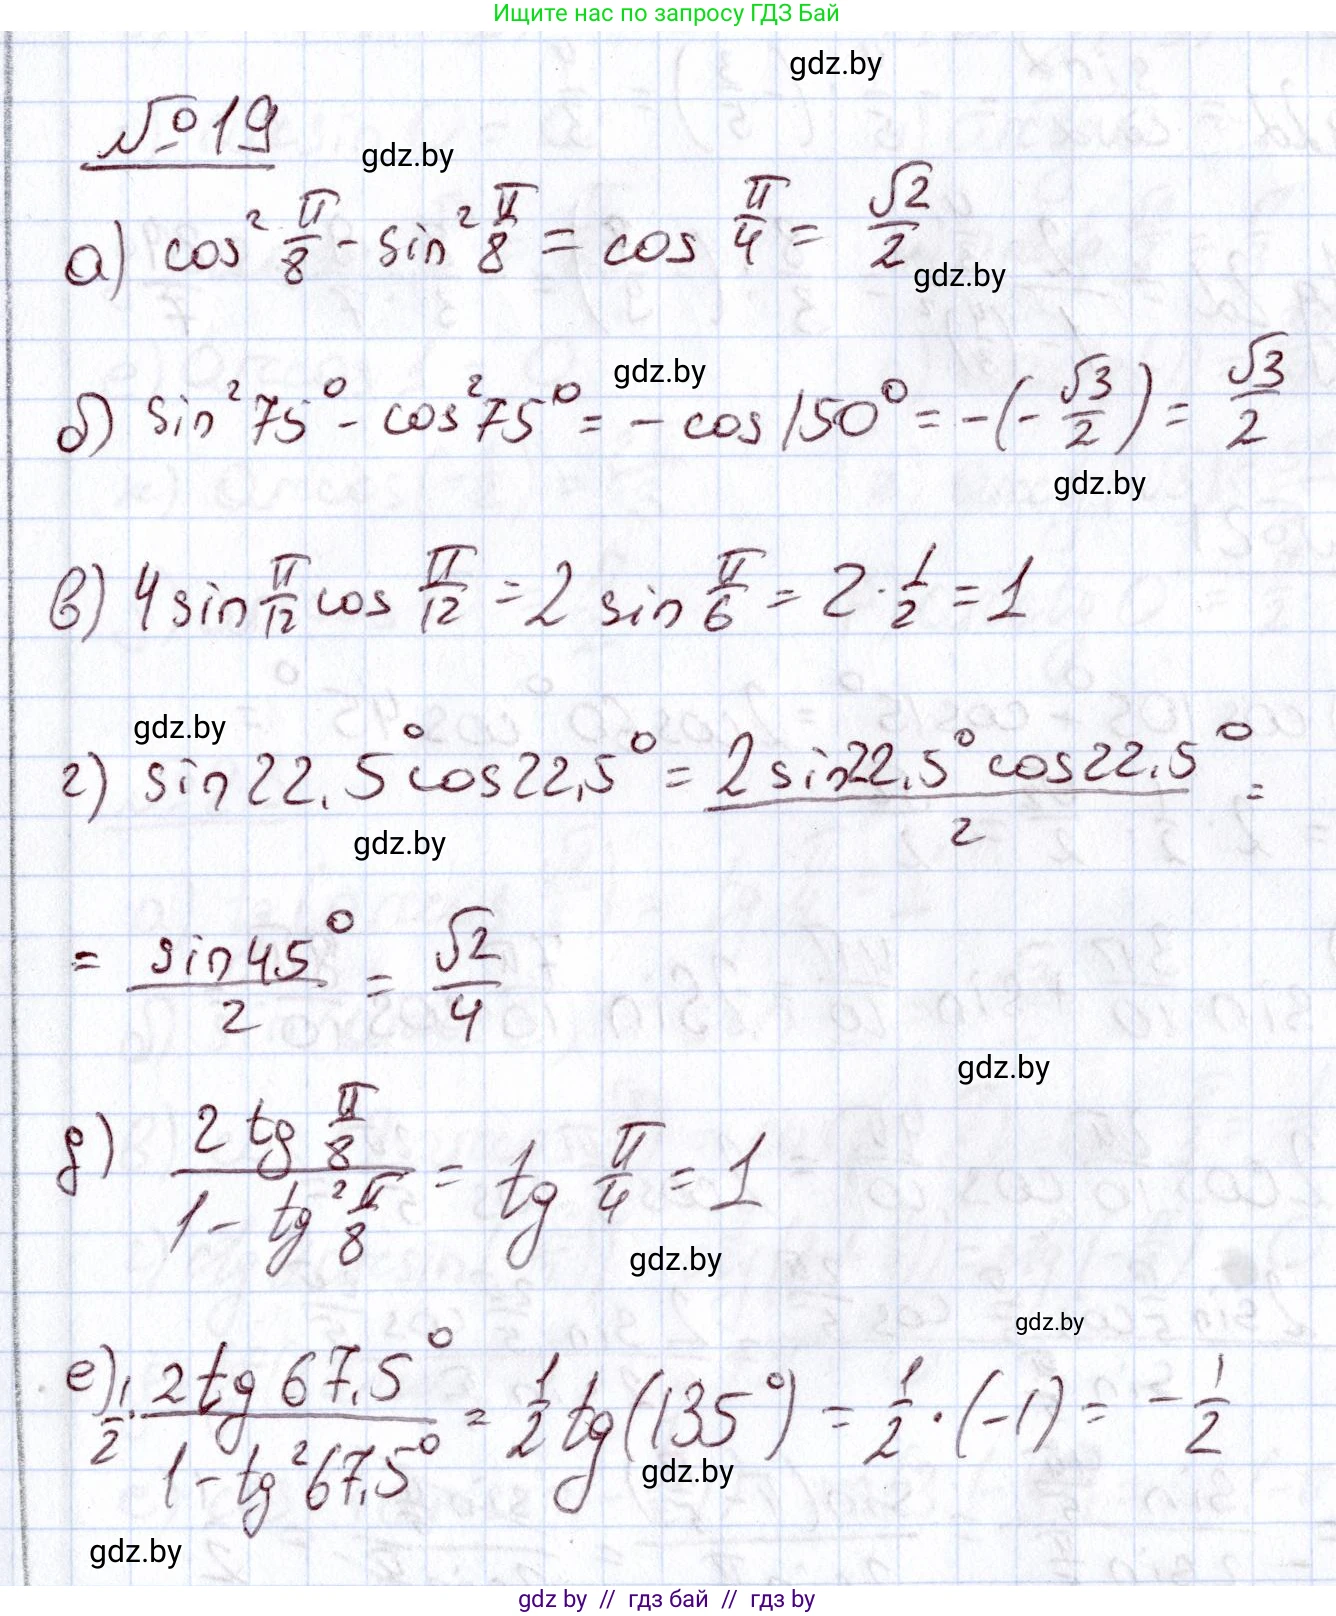 Ищите нас по запросу ГДЗ Бай
gdz.by
№19
gdz.by
а) cos² π/8 - sin² π/8 = cos π/4 = √2/2
gdz.by
gdz.by
б) sin² 75° - cos² 75° = - cos 150° = -(-√3/2) = √3/2
gdz.by
в) 4 sin π/12 cos π/12 = 2 sin π/6 = 2 · 1/2 = 1
gdz.by
г) sin 22,5° cos 22,5° = (2 sin 22,5° cos 22,5°)/2 =
gdz.by
= sin 45°/2 = √2/4
gdz.by
д) (2 tg π/8)/(1 - tg² π/8) = tg π/4 = 1
gdz.by
gdz.by
е) 1/2 · (2 tg 67,5°)/(1 - tg² 67,5°) = 1/2 tg(135°) = 1/2 · (-1) = - 1/2
gdz.by
gdz.by
gdz by // гдз бай // gdz by